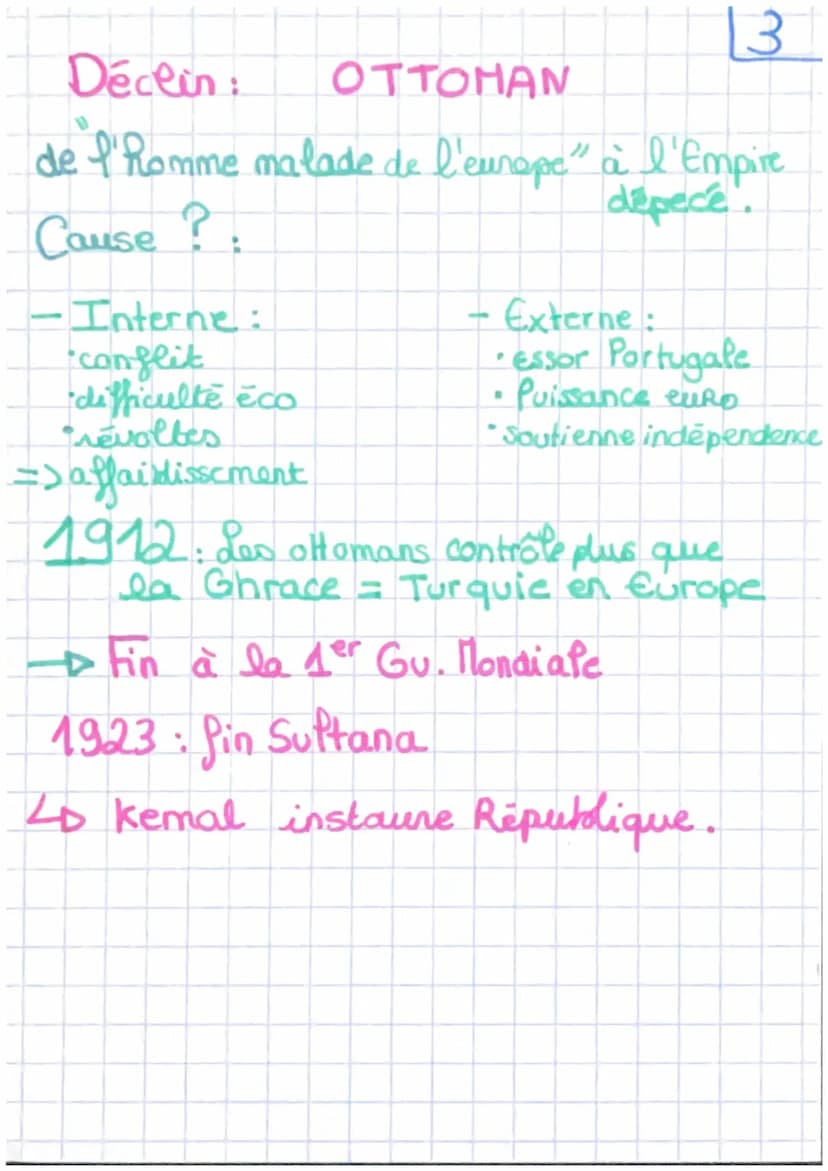 3
Déclin : OTTOMAN
de "l'homme malade de l'europe" à l'Empire
dépecé.
Cause ? :
- Interne :
• conflit
• difficulté éco
• révoltes
=> affaiblissement
- Externe :
• essor Portugale
• Puissance euro
• Soutienne indépendence
1912 : Les ottomans contrôle plus que
la Ghrace = Turquie en Europe
→ Fin à la 1er Gu. Mondiale
1923 : fin Sultana
↳ Kemal instaure République.